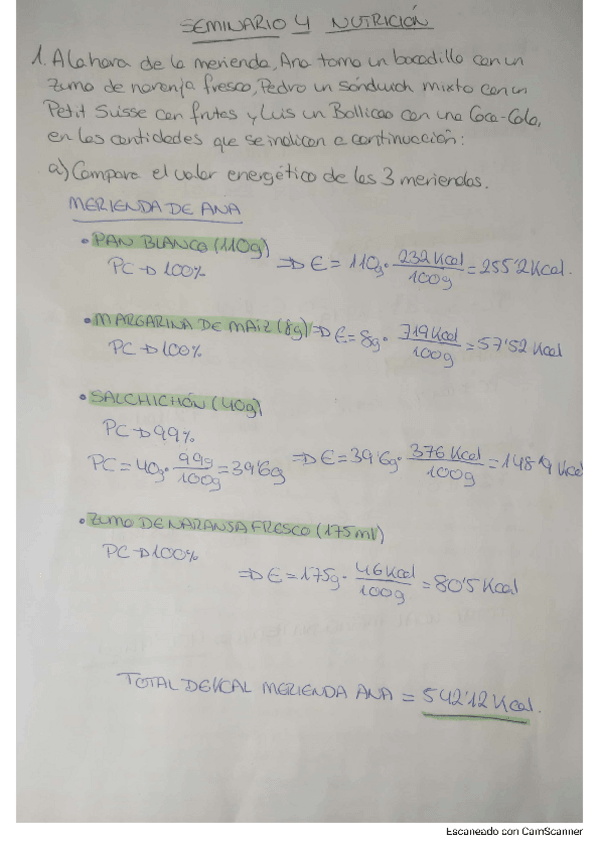 SEMINARIO 4 NUTRICIÓN
1. A la hora de la merienda, Ana toma un bocadillo con un
zumo de naranja fresco, Pedro un sándwich mixto con un
Petit Suisse con frutas y Luis un Bollicao con una Coca-Cola,
en las cantidades que se indican a continuación:
a) Compara el valor energético de las 3 meriendas.
MERIENDA DE ANA
• PAN BLANCO (110g)
PC → 100% ⇒ E = 110g · 232 Kcal / 100g = 255'2 Kcal.
• MARGARINA DE MAIZ (8g) ⇒ E = 8g · 719 Kcal / 100g = 57'52 Kcal
PC → 100%
• SALCHICHÓN (40g)
PC → 99%
PC = 40g · 99g / 100g = 39'6g ⇒ E = 39'6g · 376 Kcal / 100g = 148'9 Kcal
• ZUMO DE NARANJA FRESCO (175 ml)
PC → 100%
⇒ E = 175g · 46 Kcal / 100g = 80'5 Kcal
TOTAL DE KCAL MERIENDA ANA = 542'12 Kcal.
Escaneado con CamScanner